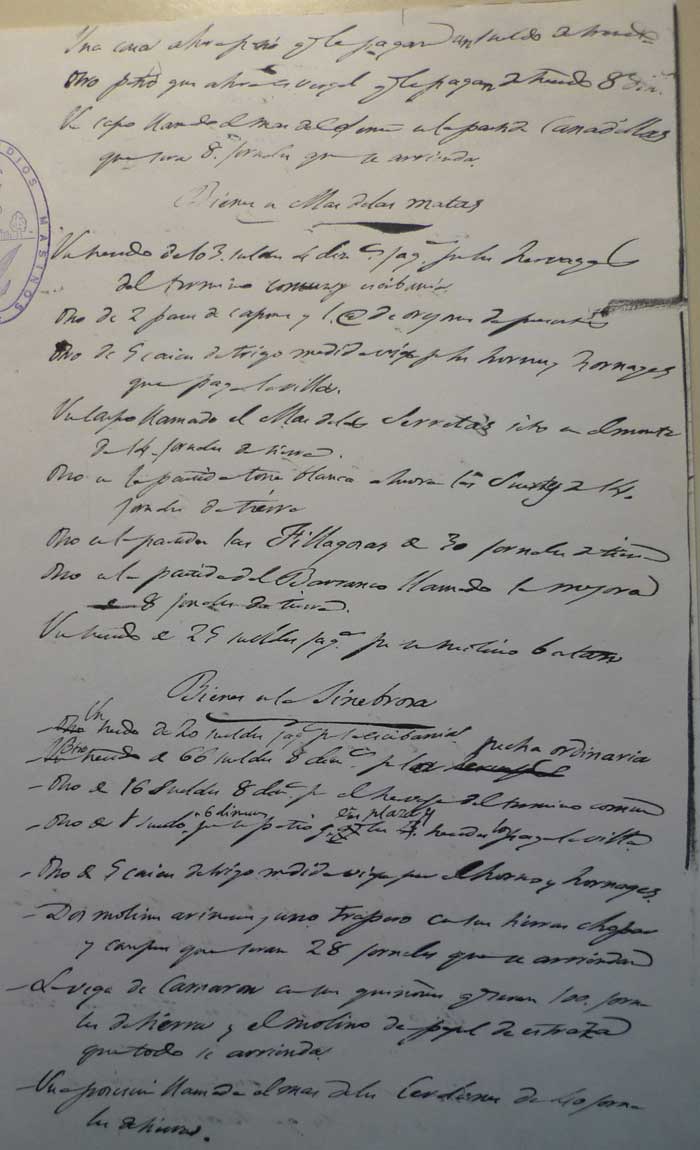 Una casa ahora patio q̃ le pagan un sueldo de treudo
Otro patio que ahora es vergel q̃ le pagan de treudo 8 din.
Un campo llamado el mas del en la partida Canadillas
que sera 8 jornales que se arrienda.
Bienes en Mas de las matas
Un treudo de 103 sueldos 4 din.s pag.o por las hervages
del termino comun y escribania
Otro de 2 pares de capones y 1 @ de
Otro de 5 caices de trigo medida vieja por los hornos y hornages
que paga la villa.
Un campo llamado el Mas de las Serretas sito en el monte
de 14 jornales de tierra.
Otro en la partida torre blanca ahora las Suertes de 14
jornales de tierra
Otro en la partida las Fillagosas de 30 jornales de tierra
Otro en la partida del Barranco llamado la mejora
de 8 jornales de tierra.
Un treudo de 25 sueldos pag.o por un molino batan
Bienes en la Ginebrosa
Un treudo de 20 sueldos pag.o por la escribania
Otro treudo de 66 sueldos 8 din.s por la pecha ordinaria
- Otro de 16 sueldos 8 din.s por el hervage del termino comun
- Otro de 1 sueldo 6 dineros por un patio en la plaza q̃ paga la villa
- Otro de 5 caices de trigo medida vieja por el horno y hornages.
- Dos molinos arineros y uno trapero con sus tierras
y campos que seran 28 jornales que se arriendan
- La vega de Camaron con sus quiñones q̃ seran 100 jorna
les de tierra y el molino de papel de estraza
que todo se arrienda.
- Una posesion llamada el mas de los de 40 jorna
les de tierra.
MASINOS